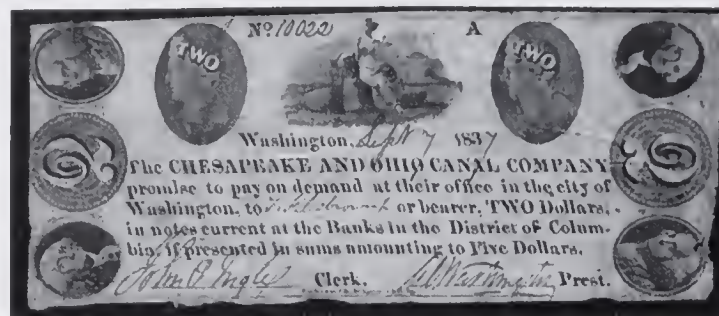 Nº 10022 A
TWO TWO
Washington, Sept 7 1837
The CHESAPEAKE AND OHIO CANAL COMPANY
promise to pay on demand at their office in the city of
Washington, to or bearer, TWO Dollars,
in notes current at the Banks in the District of Colum-
bia, if presented in sums amounting to Five Dollars.
John P Ingle Clerk. Prest.
2 2